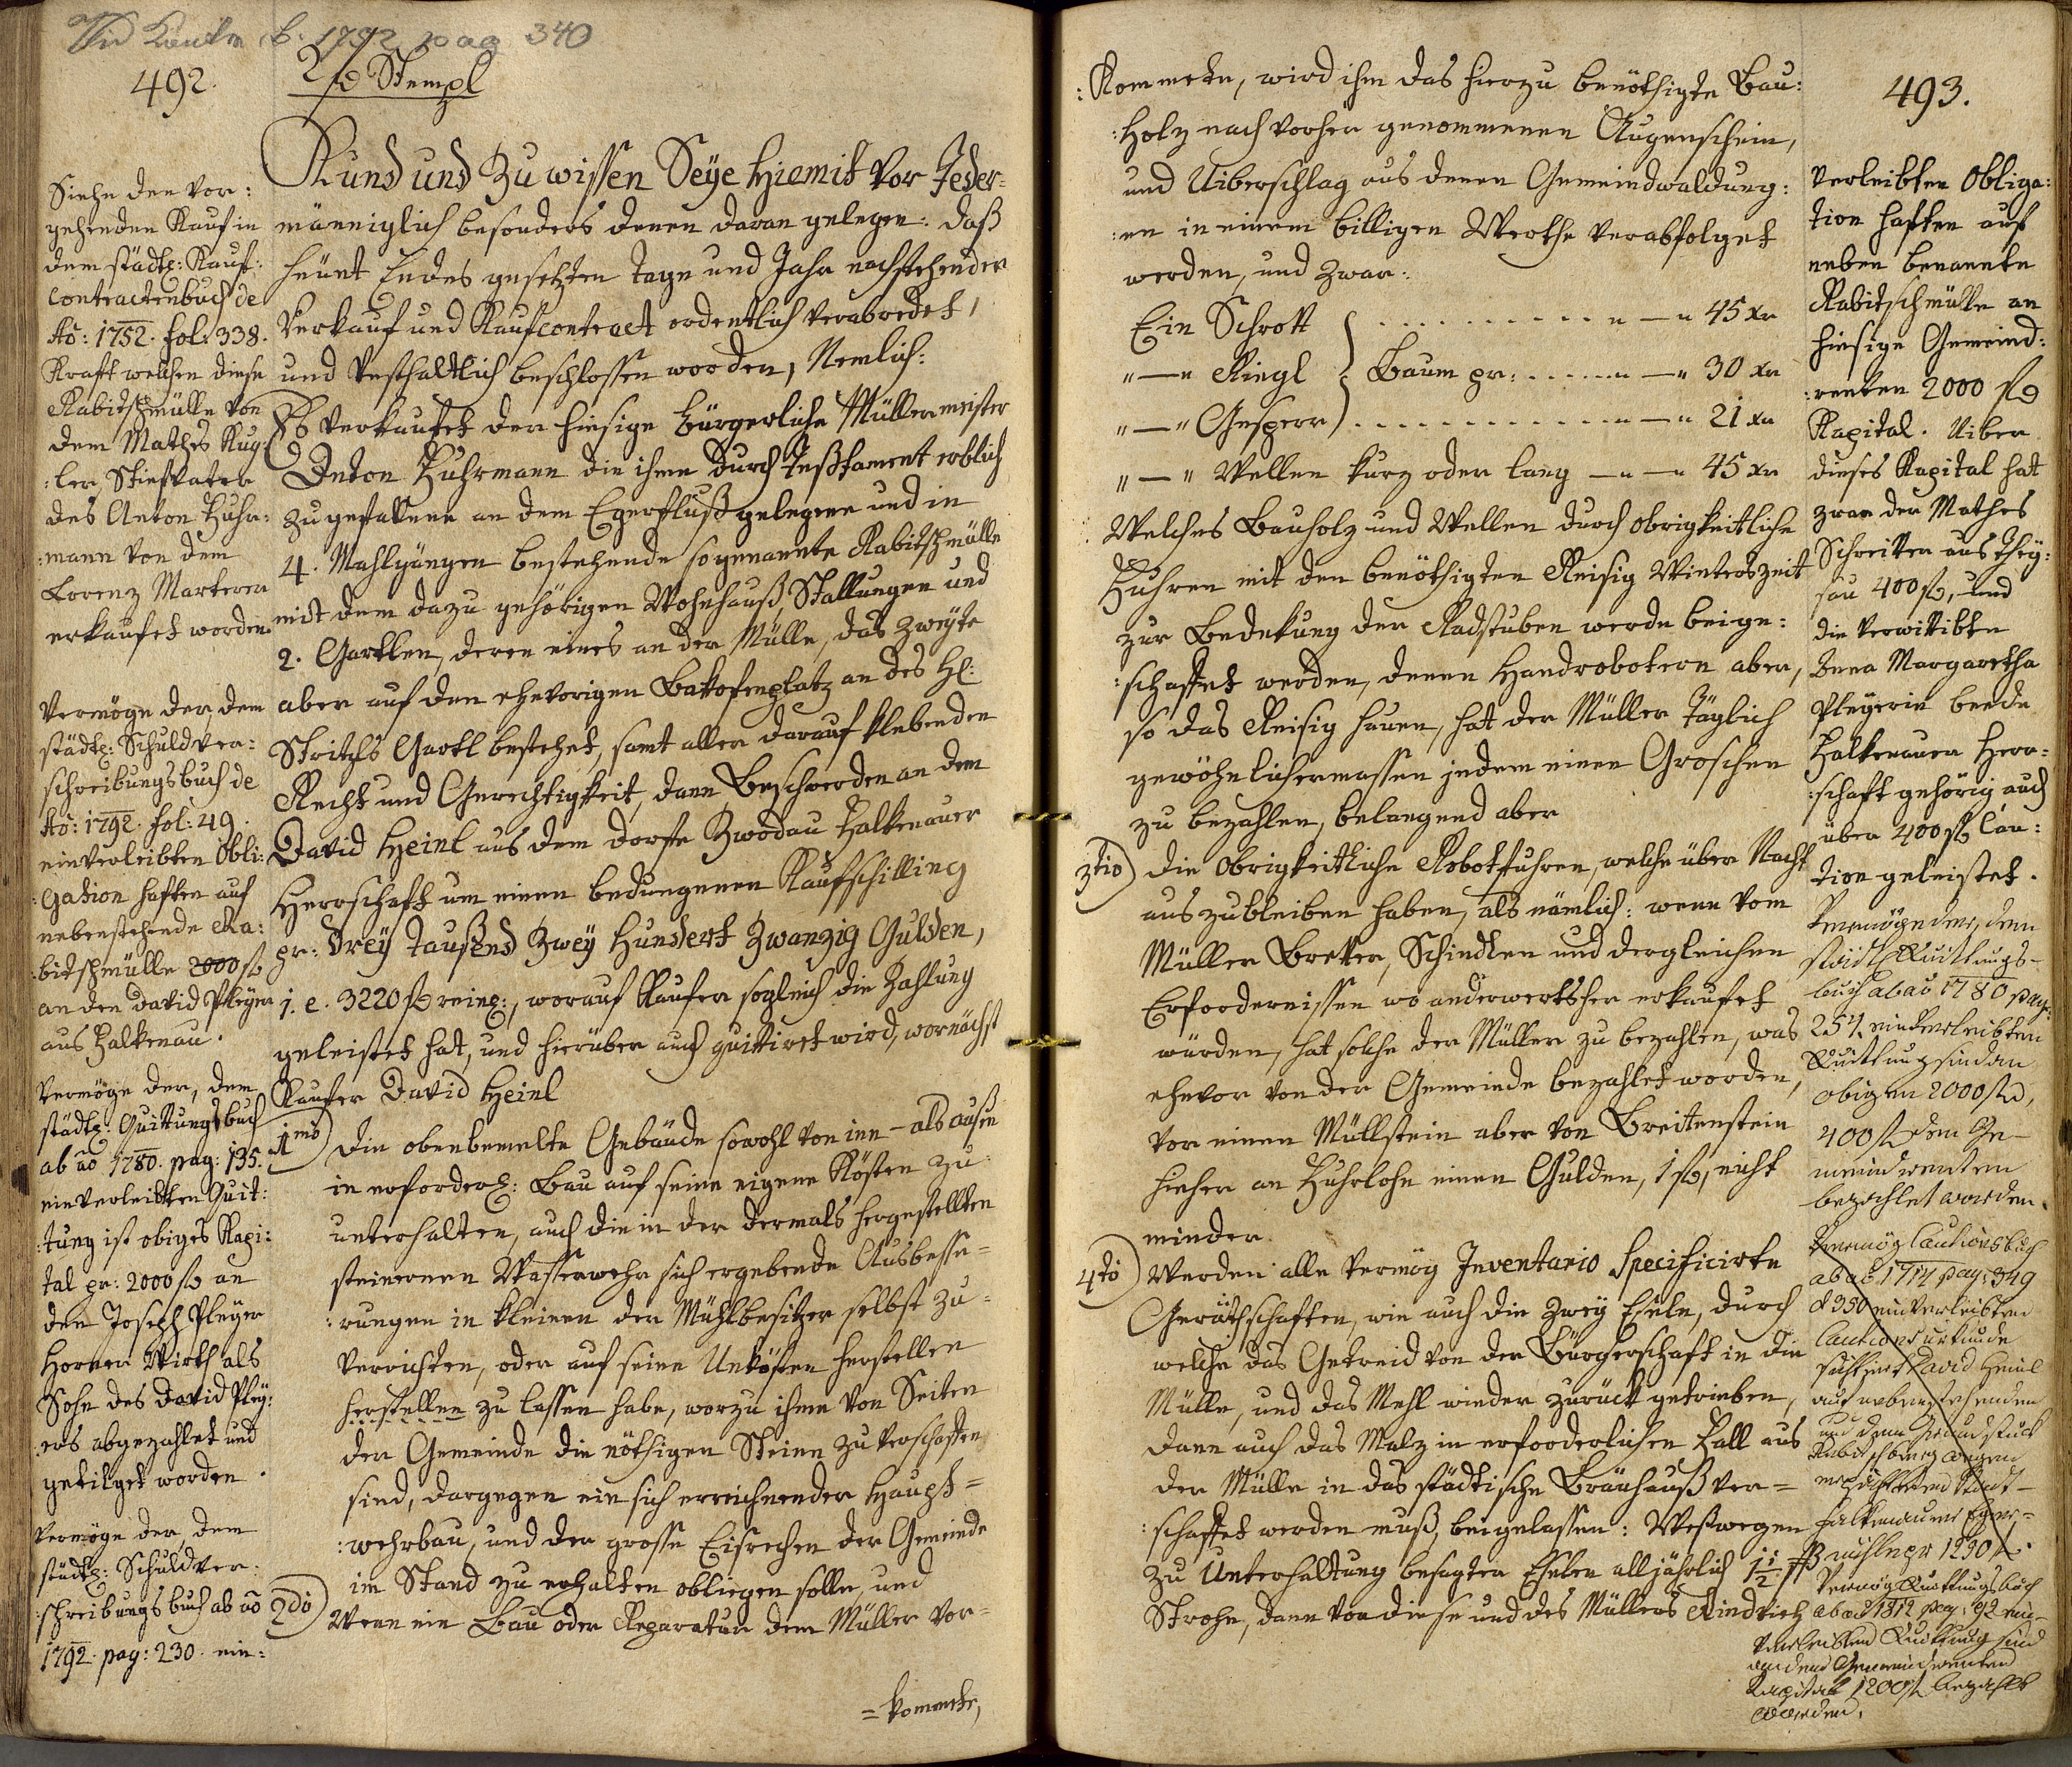 Vid Kaufm b. 1792 pag 340
492.
2 fl Stempl
Kund und Zu wissen Seÿe hiemit vor Jeder=
männiglich besonders denen daran gelegen. daß
heünt Endes gesetzten tage und Jahr nachstehender
Verkauf und Kaufcontract ordentlich verabredet,
und vesthaltlich beschlossen worden, Nemlich:
Es verkaufet der hiesige bürgerliche Müllermeister
Anton Fuhrmann die ihme durch Testament erblich
zugefallene an dem Egerfluß gelegene und in
4. Mahlgängen bestehende sogenannte Rabitschmülle
mit dem dazu gehörigen Wohnhauß, Stallungen und
2. Gartlen, deren eines an der Mülle, das zweÿte
aber auf den ehevorigen Bakofenplatz an des H:
Gartl bestehet, samt aller darauf klebenden
Recht und Gerechtigkeit, dann Beschwerden an dem
David Heinl aus dem dorfe Zwodau Falkenauer
Herrschaft um einen bedungenen Kaufschilling
pr: dreÿ taußend Zweÿ Hundert Zwanzig Gulden,
j. e. 3220 fl rein:, worauf Kaufer sogleich die Zahlung
geleistet hat, und hierüber auch quittiret wird, wornächst
Kaufer David Heinl
1mo) Die obenbemelte Gebäude sowohl von inn - als aussen
in erforderl: Bau auf seine eigene Kösten zu
unterhalten, auch die in der dermals hergestellten
steinernen Wasserwehr sich ergebende Ausbesse=
:rungen in kleinen der Mühlbesitzer selbst zu=
verrichten, oder auf seine Unkösten herstellen
herstellen zu lassen habe, worzu ihme von Seiten
der Gemeinde die nöthigen Steine zu verschaffen
sind, dargegen ein sich erreichnender Haupt=
:wehrbau, und der grosse Eisrechen der Gemeinde
im Stand zu erhalten obliegen solle, und
2do) Wenn ein Bau oder Reparatur dem Müller vor=
=kommete,
Siehe den vor:
gehenden Kauf in
dem städtl: Kauf:
contractenbuch de
Ao: 1752. fol: 338.
Kraft welchen diese
Rabitschmülle von
dem Mathes Kug
:ler Stiefvater
des Anton Fuhr:
:mann von dem
Lorenz Marterer
erkaufet worden.
Vermöge der, dem
städtl: Schuldver:
schreibungsbuch de
Ao: 1792. fol: 49.
einverleibten Obli:
:gation haften auf
nebenstehende Ra:
:bitschmülle 2000 fl
an den David Pleÿer
aus Falkenau.
Vermöge der, dem
städtl: Quittungsbuch
ab ao 1780. pag: 135.
einverleibten Quit:
:tung ist obiges Kapi:
tal pr: 2000 fl an
den Joseph Pleÿer
Horner Wirth als
Sohn des David Pleÿ:
:ers abgezahlet und
getilget worden.
Vermöge der, dem
städtl: Schuldver:
:schreibungsbuch ab ao
1792. pag: 230. ein:
493.
:Kommete, wird ihm das hierzu benöthigte Bau:
:Holz nach vorher genommenen Augenschein,
und Uiberschlag aus denen Gemeindwaldung:
:en in einem billigen Werthe verabfolget
werden, und zwar:
Ein Schrott . . . . . . . . . . " — " 45 xr
" — " Riegl } Baum pr: . . . . . " — " 30 xr
" — " Gesperr . . . . . . . . . . . . " — " 21 xr
" — " Wellen kurz oder lang — " — " 45 xr
Welches Bauholz und Wellen durch obrigkeitliche
Fuhren mit den benöthigten Reisig Winterszeit
zur Bedekung der Radstuben werde beige:
:schaffet werden, denen Handrobotern aber,
so das Reisig hauen, hat der Müller täglich
gewöhnlichermassen jedem einen Groschen
zu bezahlen, belangend aber
3tio) die Obrigkeitliche Robotfuhren, welche über Nacht
auszubleiben haben, als nämlich: wenn vom
Müller Bretter, Schindlen und dergleichen
Erfordernissen wo anderwertsher erkaufet
würden, hat solche der Müller zu bezahlen, was
ehevor von der Gemeinde bezahlet worden,
vor einen Müllstein aber von Breitenstein
hieher an Fuhrlohn einen Gulden, 1 fl, nicht
minder.
4to) Werden alle vermög Inventario Specificirte
Geräthschaften, wie auch die zweÿ Eseln, durch
welche das Getreid von der Bürgerschaft in die
Mülle, und das Mehl wieder zurück getrieben,
dann auch das Malz in erforderlichen Fall aus
der Mülle in das städtische Bräuhauß ver=
:schaffet werden muß, beigelassen: Weßwegen
zu Unterhaltung besagten Eseln alljährlich 1 1/2 ß
Strohe, dann vor diese und des Müllers Rindvieh
Verleibten Obliga:
tion haften auf
neben benannte
Rabitschmülle an
hiesige Gemeind:
:renten 2000 fl
Kapital. Uiber
dieses Kapital hat
zwar der Mathes
Schreitter aus Theÿ:
sau 400 fl, und
die verwittibte
Anna Margaretha
Pleÿerin beede
Falkenauer Herr:
:schaft gehörig auch
über 400 fl Cau:
tion geleistet.
Vermöge der, dem
städtl Quittungs-
buch ab ao 1780 pag:
251. einverleibten
Quittung sind an
obigen 2000 fl,
400 fl dem Ge-
meindrenten
bezahlet worden.
Vermög Cautionsbuch
ab ao 1714 pag: 349
& 350 einverleibten
Cautions urkunde
David Heinl
auf nebenstehenden
und dem Grundstück
wegen
Stadt-
Falkenauer Eger=
mühle pr 1290 fl.
Vermög Quittungsbuch
ab ao 1812 pag: 92 ein-
verleibten Quittung sind
an dem Gemeindrenten
Kapital 1200 fl bezahlt
worden.